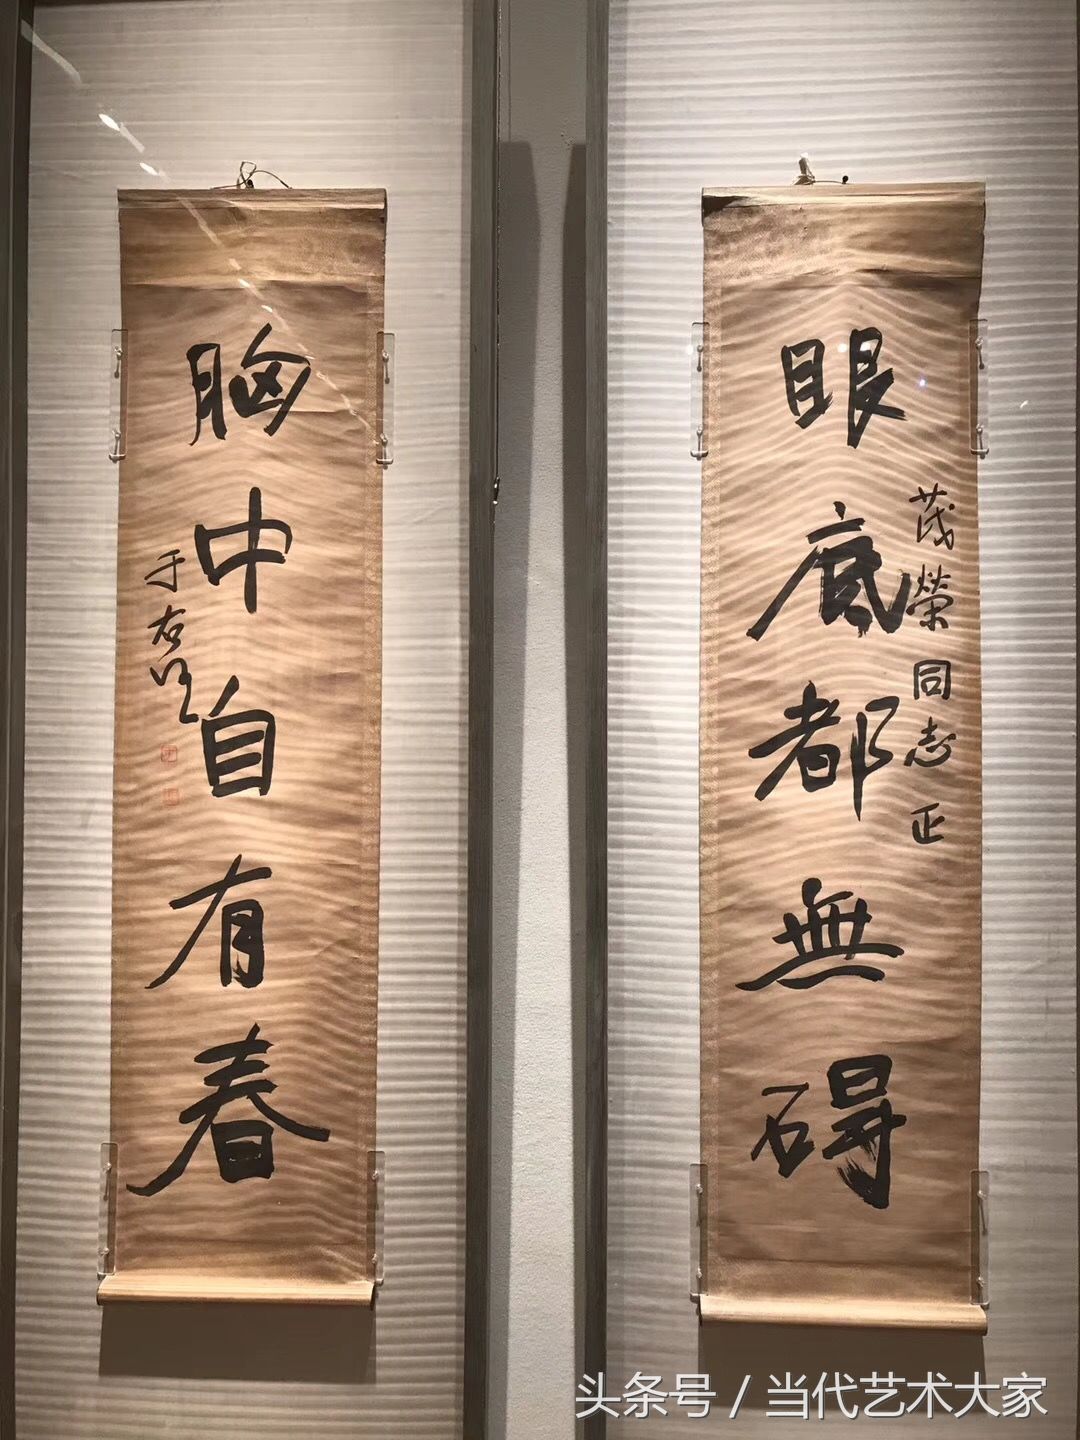 眼底都無碍
茂榮同志正
胸中自有春
于右任
头条号 / 当代艺术大家